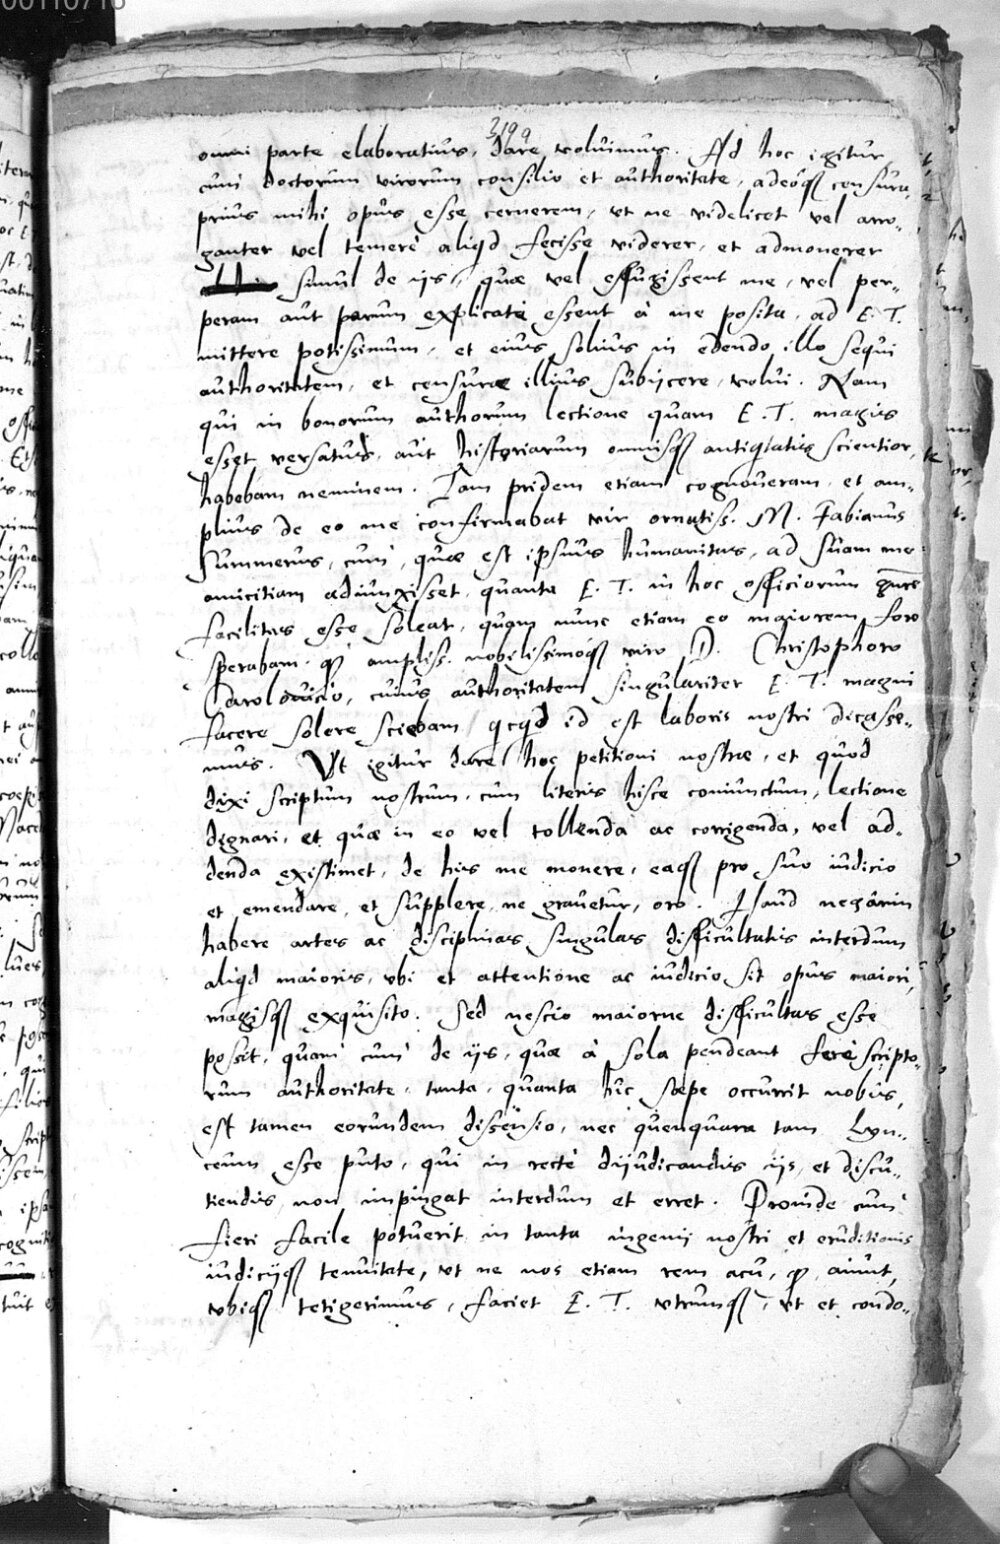 00110716
3199
omni parte elaboratius, dare voluimus. Ad hoc igitur
cum doctorum virorum consilio et authoritate, adeoq censura
prius mihi opus esse cernerem, ut ne videlicet vel arro-
ganter vel temerè aliqd fecisse viderer, et admonerer
simul de ijs, quae vel effugissent me, vel per-
peram aut parum explicatè essent à me posita, ad E. T.
mittere potissimum, et eius solius in edendo illo sequi
authoritatem, et censurae illius subijcere, volui. Nam
qui in bonorum authorum lectione quam E. T. magis
esset versatus, aut historiarum omnisq antiqtatis scientior,
habebam neminem. Iam pridem etiam cognoveram, et am-
plius de eo me confirmabat vir ornatiss. M. Fabianus
Summerus, cum, quae est ipsius humanitas, ad suam me
amicitiam adiunxisset, quanta E. T. in hoc officiorum gnre
facilitas esse soleat, quam nunc etiam eo maiorem fore
sperabam, q ampliss. nobilissimoq viro D. Christophoro
Carolovicio, cuius authoritatem singulariter E. T. magni
facere solere sciebam, qcqd id est laboris nostri dicasse-
mus. Ut igitur dare hoc petitioni nostrae, et quod
dixi scriptum nostrum, cum literis hisce coniunctum, lectione
dignari, et quae in eo vel tollenda ac corrigenda, vel ad-
denda existimet, de his me monere, eaq pro suo iudicio
et emendare, et supplere, ne gravetur, oro. Haud negarim
habere artes ac disciplinas singulas difficultatis interdum
aliqd maioris, ubi et attentione ac iudicio sit opus maiori,
magisq exquisito. Sed nescio maiorne difficultas esse
possit, quam cum de ijs, quae à sola pendeant ferè scripto-
rum authoritate, tanta, quanta hic saepe occurrit nobis,
est tamen eorundem dissensio, nec quenquam tam Lyn-
ceum esse puto, qui in rectè dijudicandis ijs, et discu-
tiendis non impingat interdum et erret. Proinde cum
fieri facile potuerit in tanta ingenij nostri et eruditionis
iudicijq tenuitate, ut ne nos etiam rem acu, q aiunt,
ubiq tetigerimus, faciet E. T. utrunq, ut et condo-